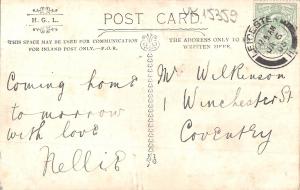 H. G. L.
POST CARD.
VK 15359
THIS SPACE MAY BE USED FOR COMMUNICATION
FOR INLAND POST ONLY.—P.O.R.
THE ADDRESS ONLY TO BE
WRITTEN HERE.
LEICESTER
Coming home
to morrow
with love
Nellie
Mr Wilkinson
1 Winchester St
Coventry